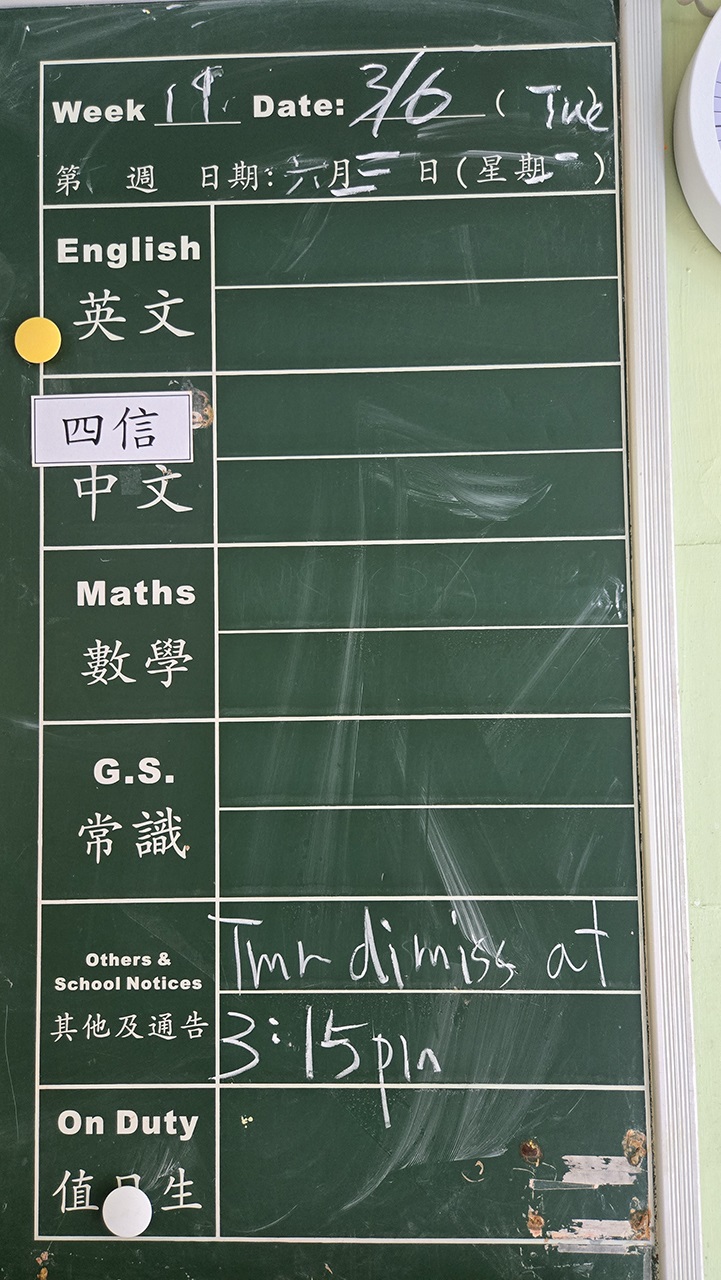 Week 19 Date: 3/6 (Tue
第 週 日期: 六月三日(星期二)
English
英文
四信
中文
Maths
數學
G.S.
常識
Others &
School Notices
其他及通告
Tmr dimiss at
3:15pm
On Duty
值日生